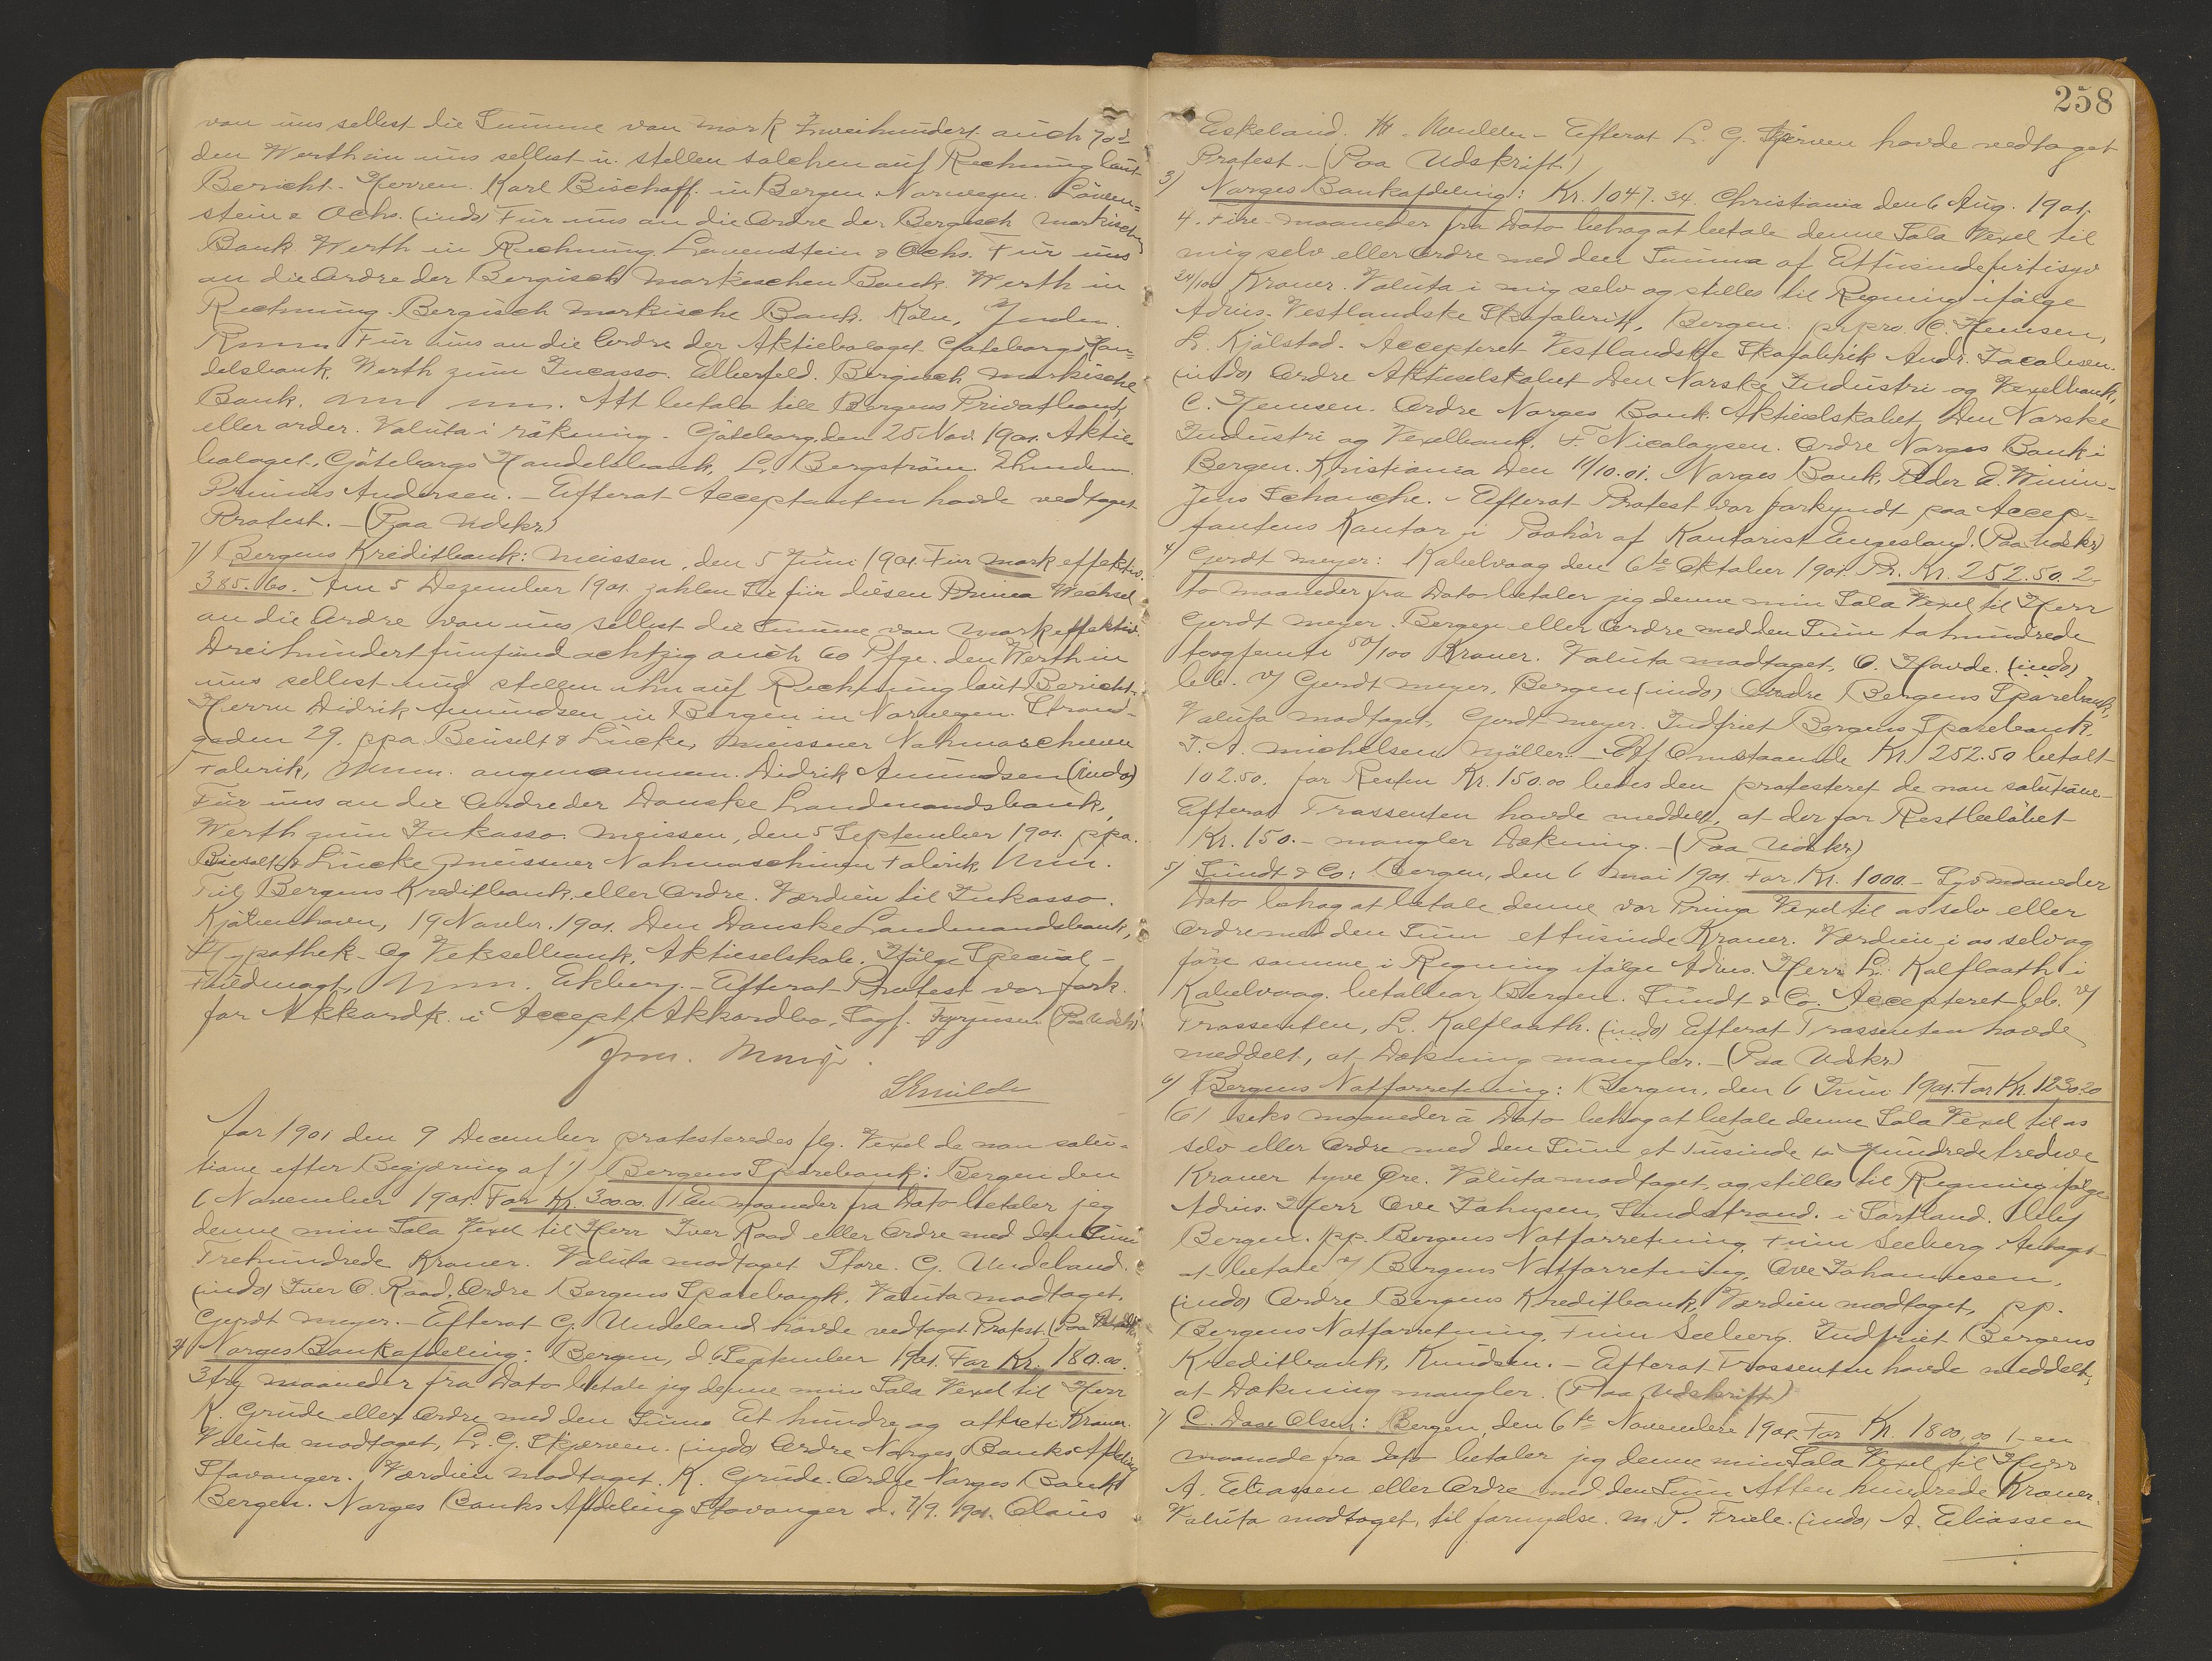 van uns sellest die Summe van Mark Zweihundert auch 70 d
den Werth in uns sellest u. stellen solchen auf Rechnung laut
Bericht. Herren. Karl Bischoff. in Bergen Norwegen. Löwen=
stein & Ochs. (indo) Für uns an die Ordre der Bergisch Markischen
Bank Werth in Rechnung. Lewenstein & Ochs. Für uns
an die Ordre der Bergisch Markischen Bank. Werth in
Rechnung. Bergisch Markische Bank. Köln,
Für uns an die Ordre der Aktiebolaget Göteborgs Han=
delsbank. Werth zum Incasso. Elberfeld. Bergisch Markische
Bank. Att betala till Bergens Privatbank
eller order. Valuta i räkning. Göteborg den 25 Nov. 1901. Aktie
bolaget, Göteborgs Handelsbank, L. Bergström.
Primus Andersen. – Efterat Acceptanten havde vedtaget
Protest. – (Paa Udskr)
7) Bergens Kreditbank: Meissen, den 5 Juni 1901. Für Mark effektiv.
385.60. Am 5 Dezember 1901 zahlen Sie für diesen Prima Wechsel
an die Ordre von uns sellest die Summe van Mark effektiv.
Dreihundertfünfundachtzig auch 60 Pfge. den Werth in
uns sellest und stellen ihn auf Rechnung laut Bericht.
Herrn Didrik Amundsen in Bergen in Norwegen. Strand-
gaden 29. ppa Beiselt & Lücke, Meissner Nahmaschinen
Fabrik, angenommen. Didrik Amundsen (indo)
Für uns an die Ordre der Danske Landmandsbank,
Werth zum Inkasso. Meissen, den 5 September 1901. ppa.
Biesolt & Lücke Meissner Nahmaschinen Fabrik
Til Bergens Kreditbank eller Ordre. Værdien til Inkasso.
Kjöbenhavn, 19 Novbr. 1901. Den Danske Landmandsbank,
Hypothek- og Vekselbank, Aktieselskab. Ifølge Special-
Fuldmagt, Ekberg. – Efterat Protest var fork.
for Akkordk. i Accept. Akkordbo, Sagf. (Paa Udskr)
Smilde
Aar 1901 den 9 December protesteredes flg. Vexel de non solu=
tione efter Begjæring af 1) Bergens Sparebank: Bergen den
6 November 1901. For Kr. 300.00. 1 En maaneder fra Dato betaler jeg
denne min Sola Vexel til Herr Iver Raad eller Ordre med den Sum
Trehundrede Kroner. Valuta modtaget Store. G. Undeland.
(indo) Iver O. Raad, Ordre Bergens Sparebank. Valuta modtaget.
Gerdt Meyer. – Efterat G. Undeland havde vedtaget Protest. (Paa Udskr)
2) Norges Bankafdeling: Bergen, d 6 September 1901. For Kr. 180.00.
3 try maaneder fra Dato betale jeg denne min Sola Vexel til Herr
K. Grude eller Ordre med den Summa Et hundre og ottieti Kroner.
Valuta modtaget, L. G. Skjerven. (indo) Ordre Norges Banks Afdeling
Stavanger. Værdien modtaget. K. Grude. Ordre Norges Bank
Bergen. Norges Banks Afdeling Stavanger d. 7/9. 1901. Claus
258
Eskeland. – Efterat L. G. Skjerven havde vedtaget
Protest. – (Paa Udskrift)
3) Norges Bankafdeling: Kr. 1047.34. Christiania den 6 Aug. 1901.
4. Fire maaneder fra Dato behag at betale denne Sola Vexel til
mig selv eller Ordre med den Summa af Ettusindefirtisyv
34/100 Kroner. Valuta i mig selv og stilles til Regning ifølge
Advis. Vestlandske Skofabrik, Bergen. prpro. C. Hemsen,
L. Kjölstad. Accepteret Vestlandske Skofabrik Andr. Jacobsen.
(indo) Ordre Aktieselskabet Den Norske Industri og Vexelbank,
C. Hemsen. Ordre Norges Bank. Aktieselskabet Den Norske
Industri og Vexelbank, F. Nicolaysen. Ordre Norges Bank i
Bergen. Kristiania den 11/10.01. Norges Bank, Peder E. Winin-
Jens Schanche. – Efterat Protest var forkyndt paa Accep=
tantens Kontor i Paahör af Kontorist Engesland. (Paa Udskr)
4) Gerdt Meyer: Kabelvaag den 6te Oktober 1901. Pr. Kr. 252.50. 2-
to maaneder fra Dato betaler jeg denne min Sola Vexel til Herr
Gerdt Meyer. Bergen eller Ordre med den Sum tohundrede
toogfemti 50/100 Kroner. Valuta modtaget, O. Hovde. (indo)
beb. v/ Gerdt Meyer, Bergen (indo) Ordre Bergens Sparebank,
Valuta modtaget, Gerdt Meyer. Indfriet Bergens Sparebank.
J. A. Michelsen Möller. – Af Omstaaende Kr. 252.50 betalt
102.50. for Resten Kr. 150.00 bedes den protesteret de non solutione –
Efterat Trassenten havde meddelt, at der for Restbelöbet
Kr. 150. – mangler Dækning. – (Paa Udskr)
5) Sundt & Co: Bergen, den 6 Mai 1901. For. Kr. 1000. – Syv maaneder
Dato behag at betale denne vor Prima Vexel til os selv eller
Ordre med den Sum ettusinde Kroner. Værdien i os selv og
före samme i Regning ifölge Advis. Herr L. Kalflaath i
Kabelvaag. betalbar Bergen. Sundt & Co. Accepteret beb. v/
Trassenten, L. Kalflaath. (indo) Efterat Trassenten havde
meddelt, at Dækning mangler. – (Paa Udskr)
6) Bergens Notforretning: Bergen, den 6 Juni 1901. For Kr. 1230.20
(6) seks maaneder á Dato behag at betale denne Sola Vexel til os
selv eller Ordre med den Sum et Tusinde to Hundredetredive
Kroner tyve Øre. Valuta modtaget, og stilles til Regning ifølge
Advis. Herr Ove Johnsen, Sundstrand. i Sortland.
Bergen. pp. Bergens Notforretning, Finn Seeberg. Antaget
at betale v/ Bergens Notforretning, Ove Johannesen,
(indo) Ordre Bergens Kreditbank, Værdien modtaget, pp.
Bergens Notforretning, Finn Seeberg. Indfriet Bergens
Kreditbank, Knudsen. – Efterat Trassenten havde meddelt,
at Dækning mangler. (Paa Udskrift)
7) C. Dase Olsen: Bergen, den 6te November 1901. For Kr. 1800,00 1-en
maanede fra dato betaler jeg denne min Sola Vexel til Herr
A. Eliassen eller Ordre med den Sum Atten hundrede Kroner.
Valuta modtaget, til fornyelse. M. P. Friele. (indo) A. Eliassen